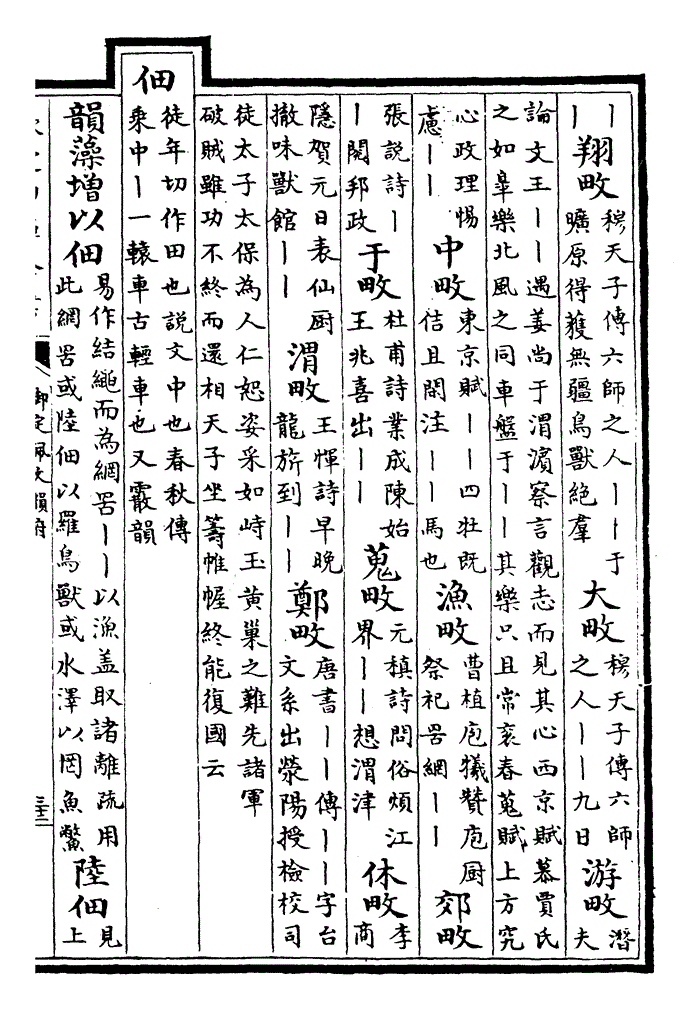 ｜
｜
翔畋
穆天子傳六師之人｜｜于
曠原得獲無疆鳥獸絶羣
大畋
穆天子傳六師
之人｜｜九日
游畋
潛
夫
論文王｜｜遇姜尚于渭濱察言觀志而見其心西京賦慕賈氏
之如皋樂北風之同車盤于｜｜其樂只且常衮春蒐賦上方究
心政理惕
慮｜｜
中畋
東京賦｜｜四牡既
佶且閑注｜｜馬也
漁畋
曹植庖犧贊庖厨
祭祀罟網｜｜
郊畋
張說詩｜
｜閱邦政
于畋
杜甫詩業成陳始
王兆喜出｜｜
蒐畋
元稹詩問俗煩江
界｜｜想渭津
休畋
李
商
隱賀元日表仙厨
撤味獸館｜｜
渭畋
王惲詩早晚
龍旂到｜｜
鄭畋
唐書｜｜傳｜｜字台
文系出滎陽授檢校司
徒太子太保為人仁恕姿采如峙玉黄巢之難先諸軍
破賊雖功不終而還相天子坐籌帷幄終能復國云
佃
徒年切作田也說文中也春秋傳
乘中｜一轅車古輕車也又霰韻
韻藻增以佃
易作結繩而為網罟｜｜以漁蓋取諸離疏用
此網罟或陸佃以羅鳥獸或水澤以罔魚鱉
陸佃
見
上
御定佩文韻府